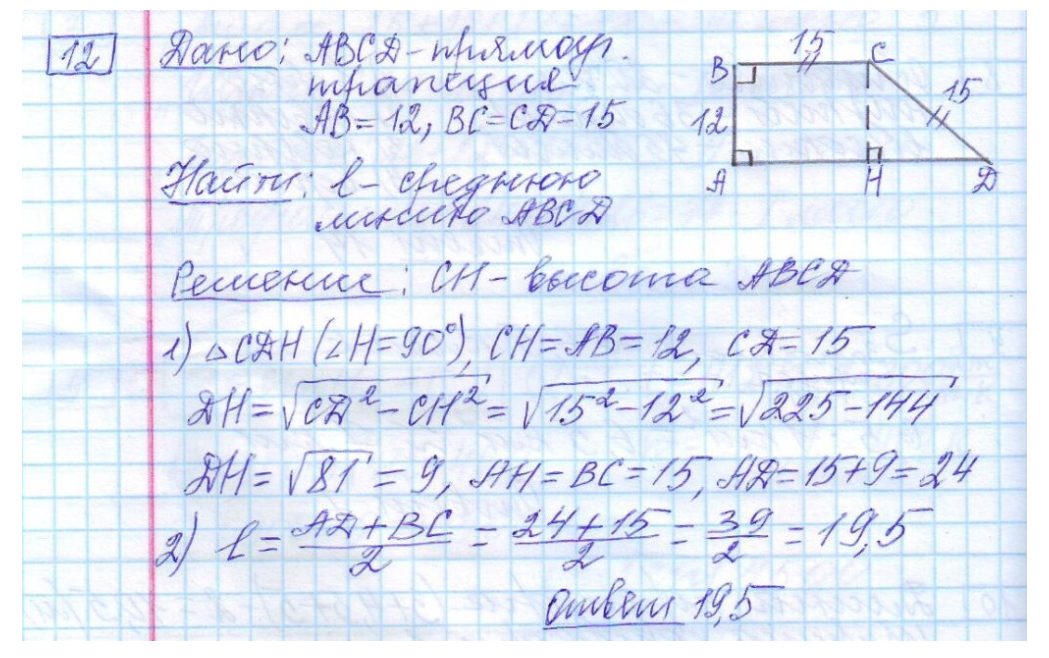 12 Дано: ABCD - прямоуг.
трапеция
AB = 12, BC = CD = 15
Найти: l - среднюю
линию ABCD
15
B
C
15
12
A
H
D
Решение: CH - высота ABCD
1) △CDH (∠H=90°), CH = AB = 12, CD = 15
DH = √CD² - CH² = √15² - 12² = √225 - 144
DH = √81 = 9, AH = BC = 15, AD = 15 + 9 = 24
2) l = AD + BC / 2 = 24 + 15 / 2 = 39 / 2 = 19,5
Ответ 19,5